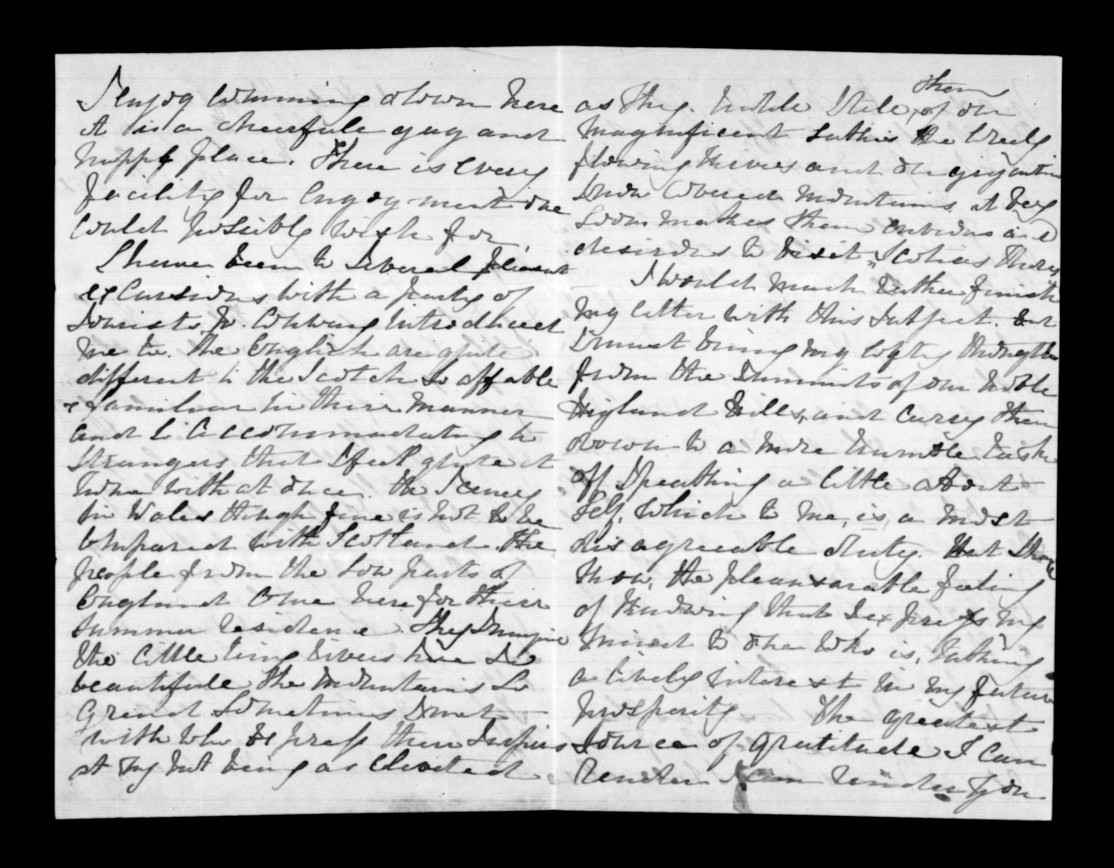 I enjoy comming down here
it is a cheerfule gay and
happy place. There is every
facility for enjoyment one
could possible wish for.
I have been to several pleasant
excursions with a party of
tourists Mr. Conway introduced
me to. The English are quite
different to the Scotch so affable
& familiar in there manner
and so accommadating to
strangers that I feel quite at
home with at once. the Scenery
in Wales though fine is not to be
compared with Scotland. The
people from the low parts of
England come here for their
summer residence. They Imagine
the little tiny rivers here so
beautifule the mountains so
Grand Sometimes I met
with who express their surprise
at my not being as elevated
as they. while I tele them of our
magnificent the
flowing rivers and our gigantic
snow covered mountains. it very
soon makes them envious and
desirous to visit "Scotias
I would much rather finish
my letter with this subject. but
I must bring my lofty thoughts
from the summits of our noble
Highland Hills, and carry them
down to a more humble
off speaking a little about
self, which to me, is, a most
disagreeable duty. But I have
now, the pleasurable feeling
of knowing that I express my
mind to one who is, taking
a lively interest in my future
prosperity The greatest
source of gratitude I can
render I can render you